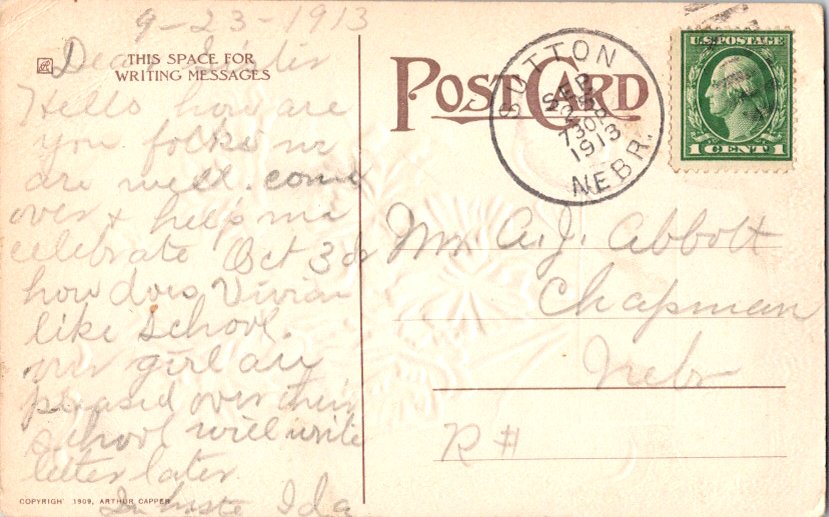 9-23-1913
Dear Sister
THIS SPACE FOR
WRITING MESSAGES
Hello how are
you folks we
are well. come
over & help me
celebrate Oct 3d
how does Vivian
like School.
our girl are
pleased over their
school will write
letter later
In haste Ida
COPYRIGHT 1909, ARTHUR CAPPER
POST CARD
SUTTON
SEP
730P
1913
NEBR.
U.S. POSTAGE
1 CENT 1
A. J. Abbott
Chapman
Nebr
R #